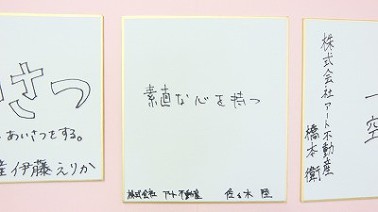 さつ
あいさつをする。
産 伊藤えりか
素直な心を持つ
株式会社 アート不動産 佐々木 陸
一空
株式会社アート不動産
橋本 衛